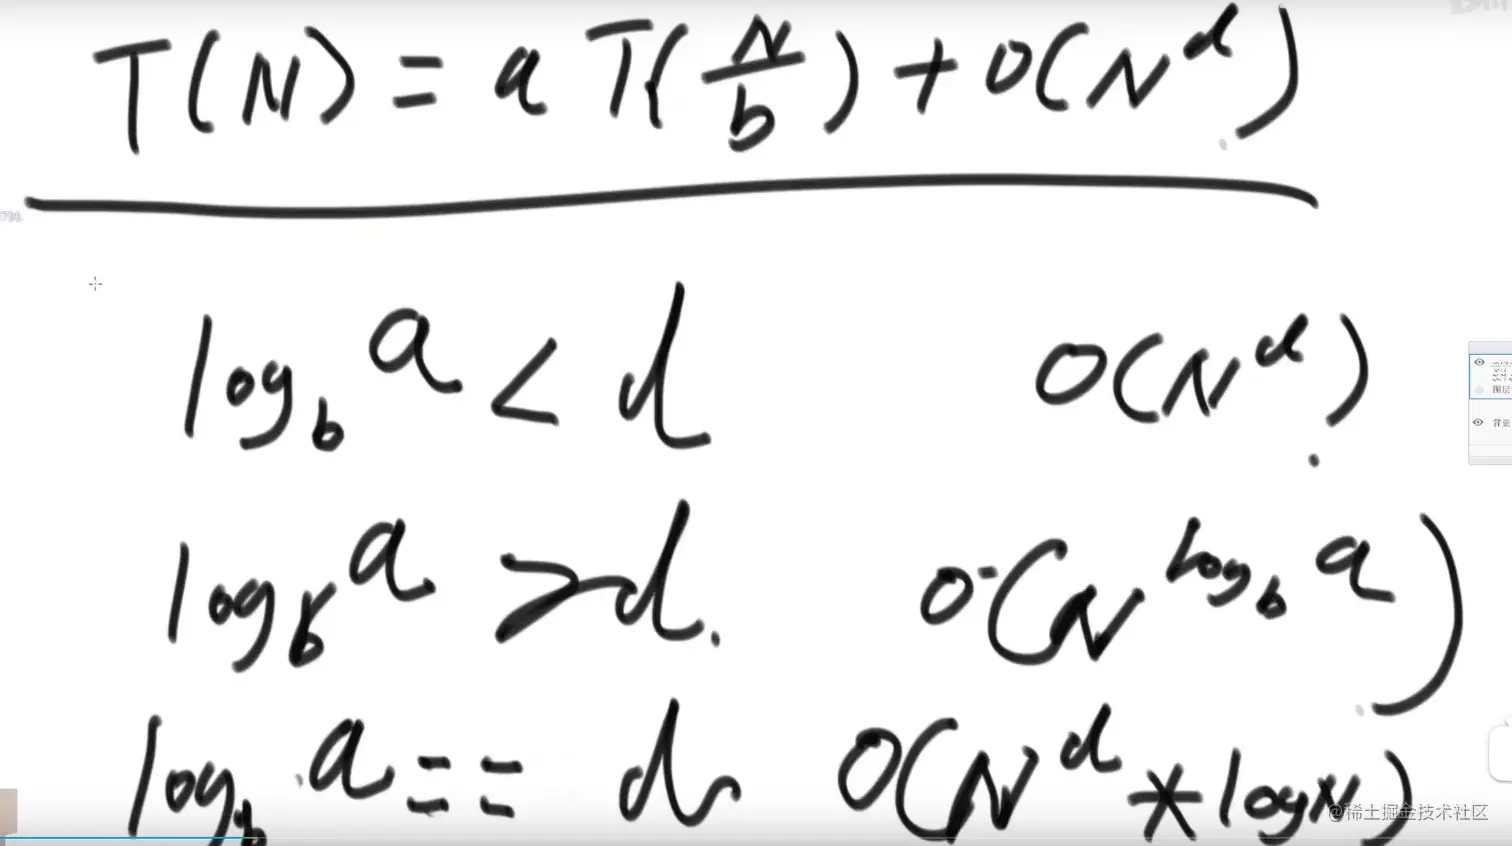 T(N) = a T(N/b) + O(N^d)
log_b a < d O(N^d)
log_b a > d. O(N^(log_b a))
log_b a == d O(N^d * logN)
图层
背景
@稀土掘金技术社区